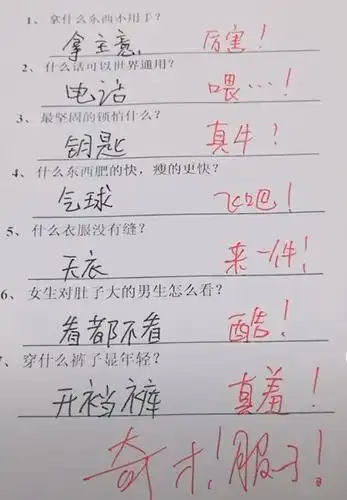 1、拿什么东西不用手？
拿主意 厉害！
2、什么话可以世界通用？
电话 喂…！
3、最坚固的锁怕什么？
钥匙 真牛！
4、什么东西肥的快，瘦的更快？
气球 飞吧！
5、什么衣服没有缝？
天衣 来一件！
6、女生对肚子大的男生怎么看？
看都不看 酷！
、穿什么裤子显年轻？
开裆裤 真羞！
奇才！服了！